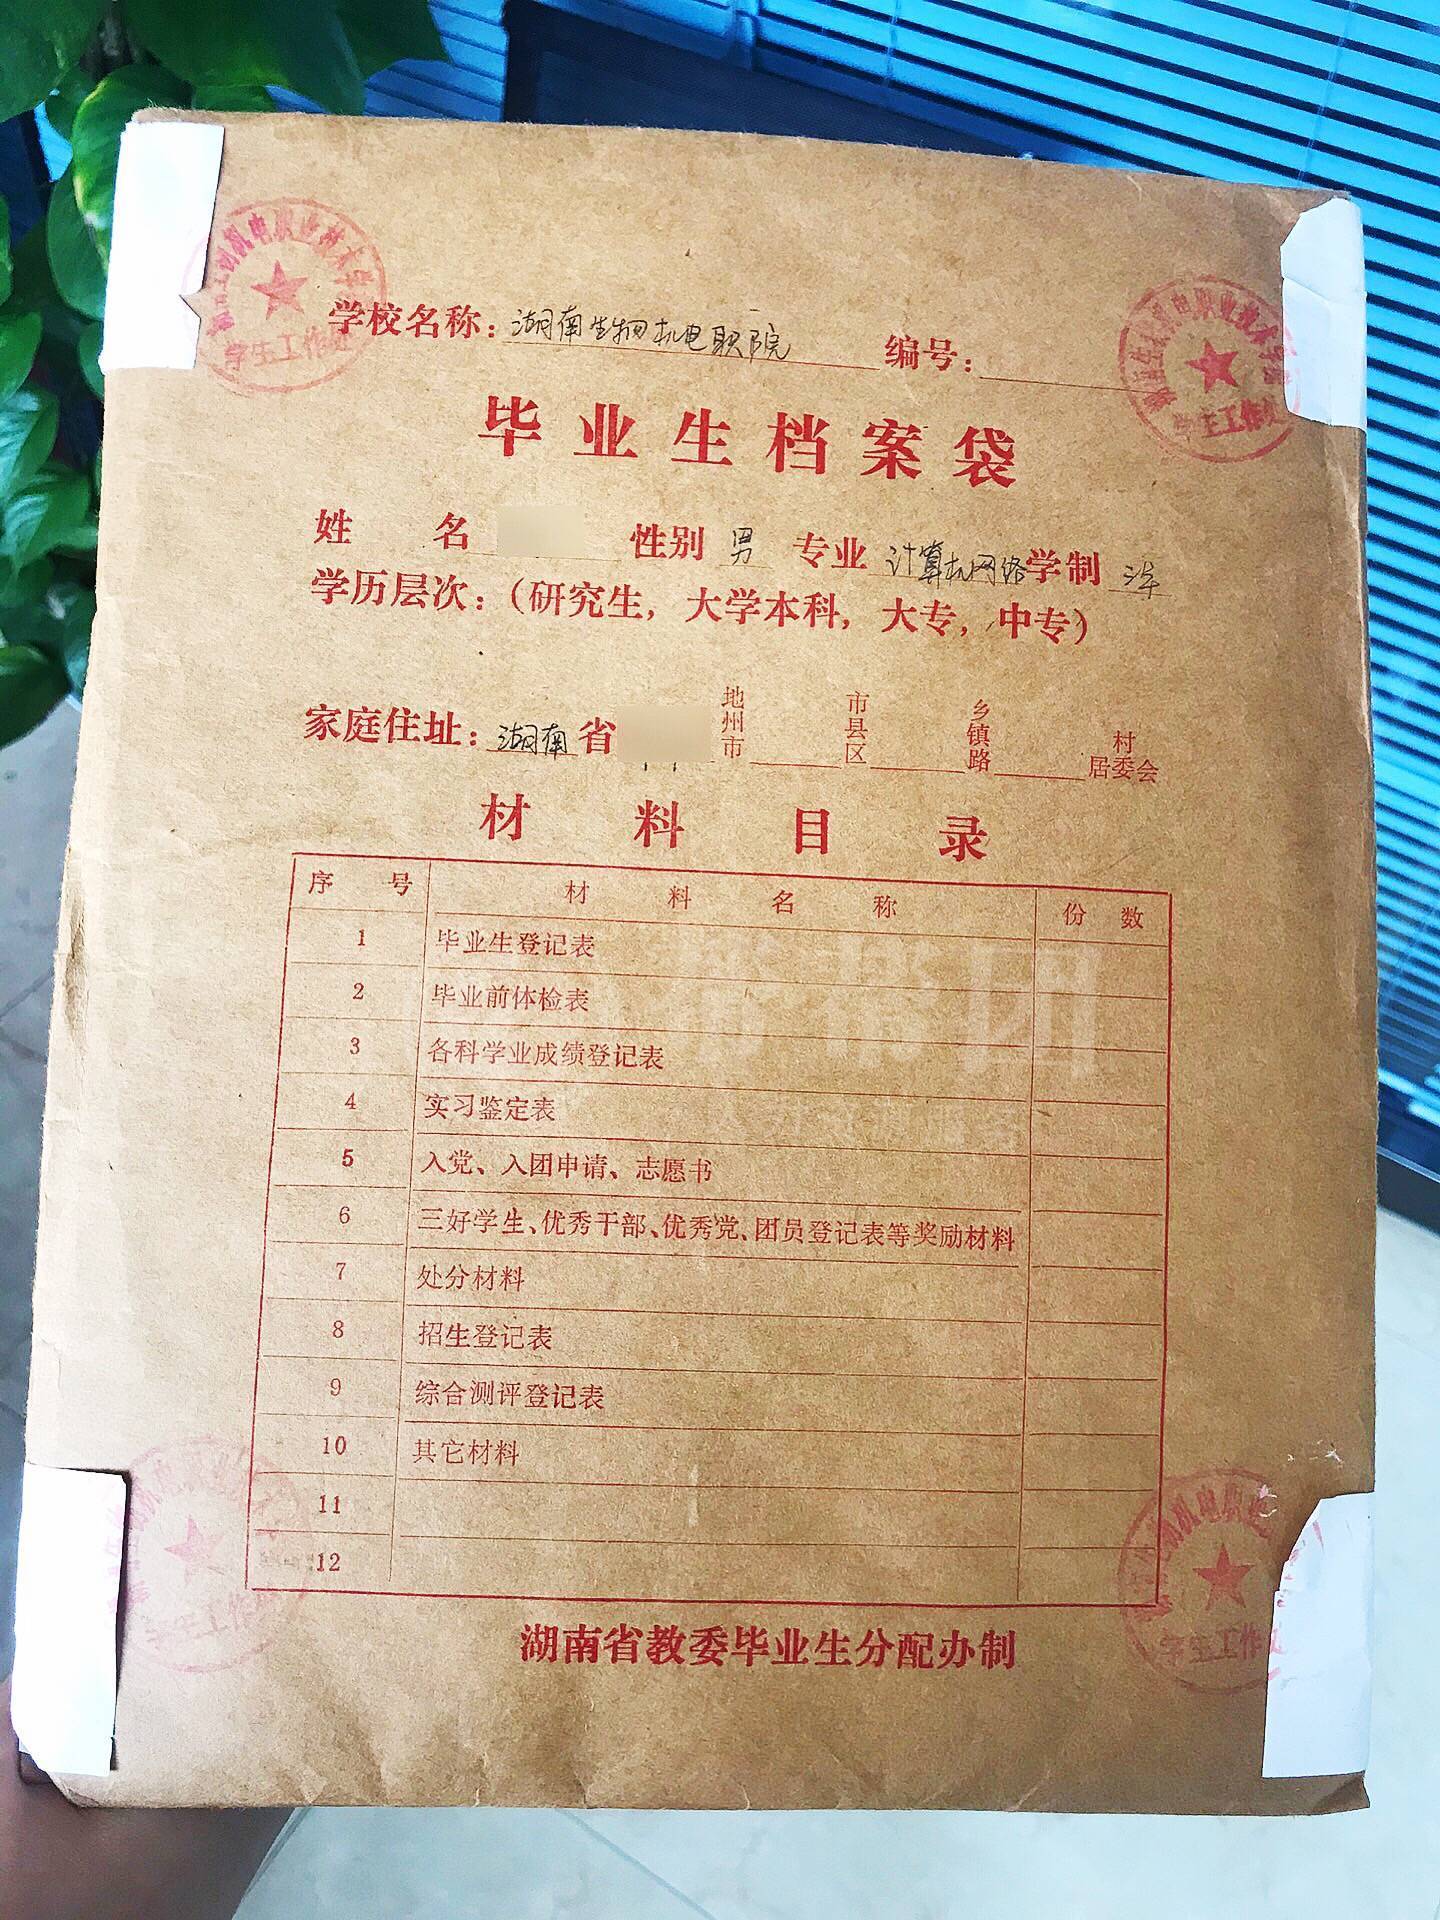 学校名称：湖南生物机电职院 编号：
毕业生档案袋
姓 名 性别 男 专业 计算机网络 学制
学历层次：（研究生，大学本科，大专，中专）
家庭住址：湖南省 地州市 市县区 乡镇路 村居委会
材料目录
序号 材料名称 份数
1 毕业生登记表
2 毕业前体检表
3 各科学业成绩登记表
4 实习鉴定表
5 入党、入团申请、志愿书
6 三好学生、优秀干部、优秀党、团员登记表等奖励材料
7 处分材料
8 招生登记表
9 综合测评登记表
10 其它材料
11
12
湖南省教委毕业生分配办制
机电职业技术学
学生工作处
机电职业技术学院
学生工作处
学生工作
机电职业
学生工作